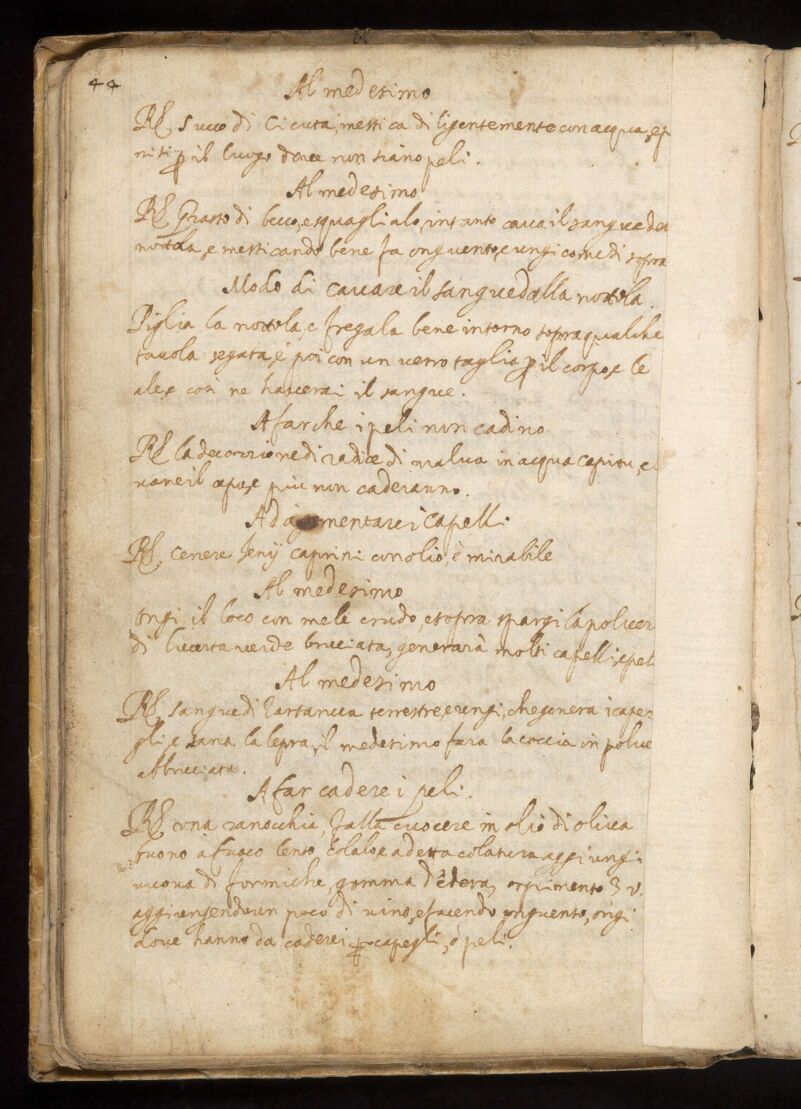 44
Al medesimo
R. Succo di Cicuta, mestica diligentemente con acqua, et
p il luogo dove non siano peli.
Al medesimo
R. Grasso di becco, e squaglialo, intanto cava il sangue da
nottola, e mesticando bene fa onguento, e ungi come di sopra
Modo di cavare il sangue dalla nottola.
Piglia la nottola, e fregala bene intorno sopra qualche
tavola segata, e poi con un vetro taglia p il corpo, e le
ale, e così ne haverai il sangue.
A far che i peli non cadino
R. la decozzione di radice di malva in acqua
il capo, e più non caderanno.
Ad agomentare i capelli.
R. Cenere fenij caprini con olio, è mirabile
Al medesimo
Ongi il loco con mele crudo, e sopra spargi la polver
di lucerta verde bruciata, generarà molti capelli, e pel
Al medesimo
R. Sangue di Tartaruca terrestre, e ungi, che genera i cape-
gli, e sana la lepra, il medesimo farà la coccia in polve
Abruciata.
A far cadere i peli.
R. una ranocchia, falla cuocere in olio di oliva
buono a fuoco lento, colalo, e a detta colatura aggiungi
uova di formiche, gomma d'edera, orpimento ʒ v.
aggiungendo un poco di vino, e facendo onguento, ongi
dove hanno da cadere i capegli, ò peli.